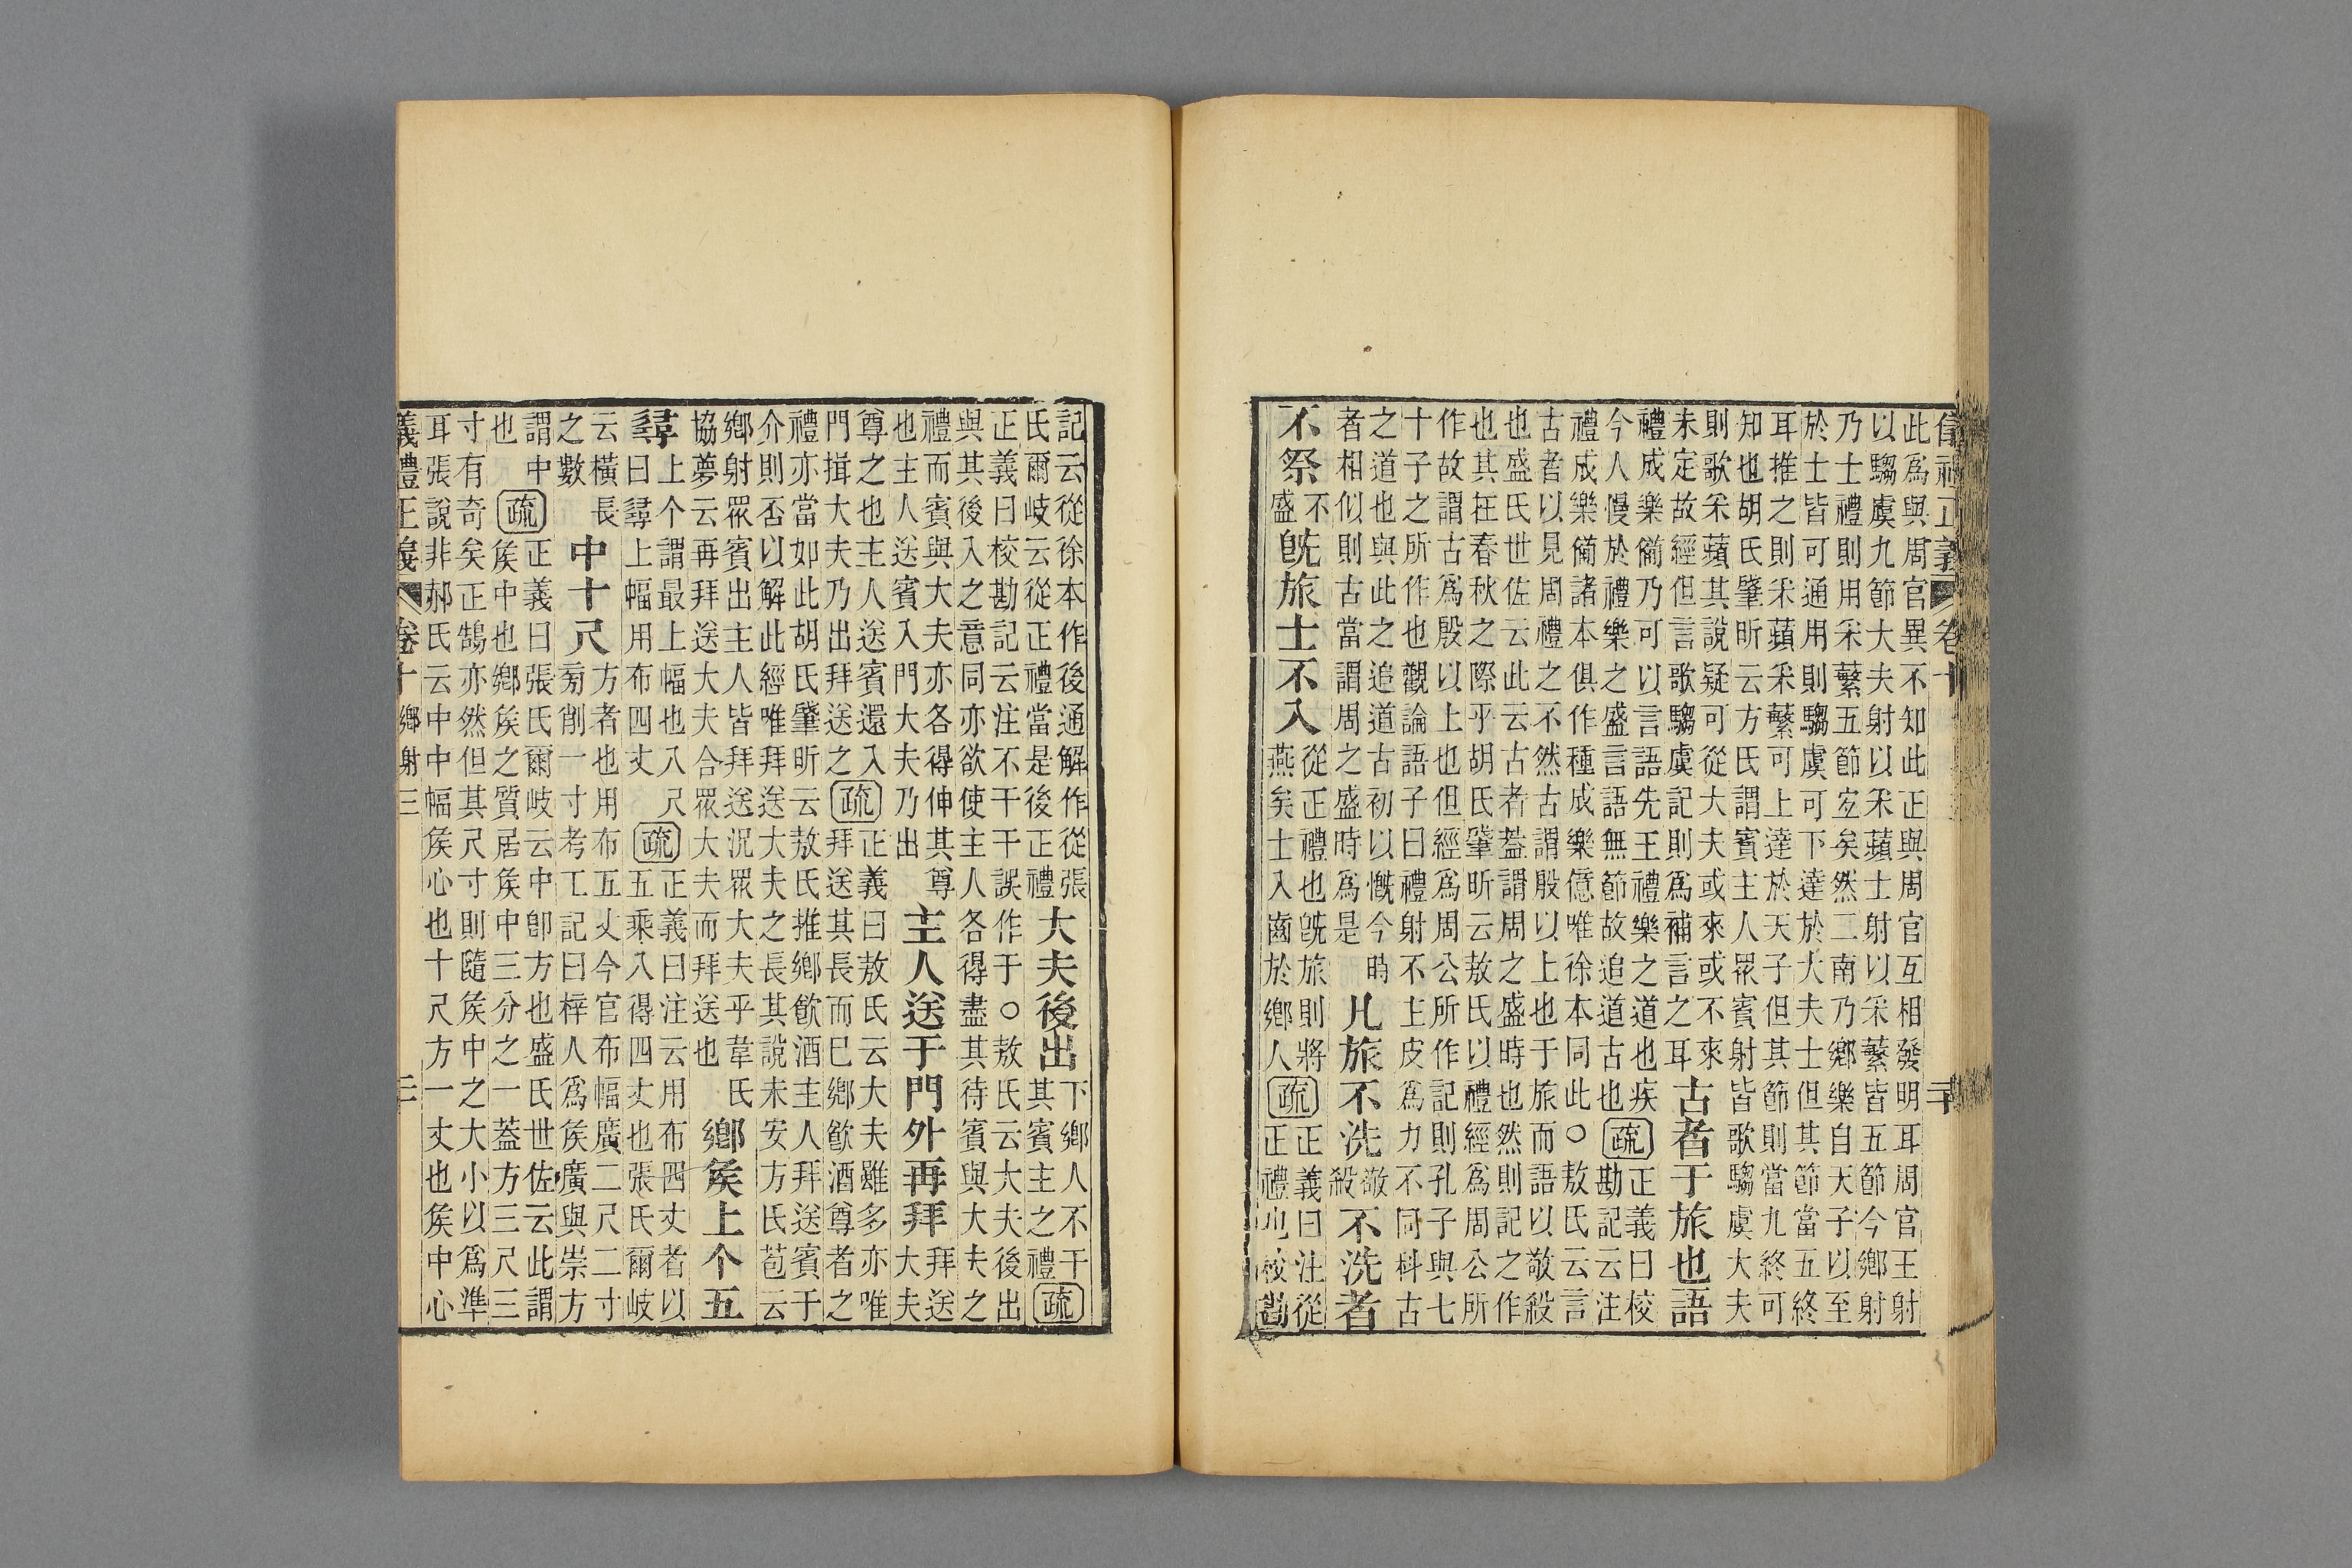 儀禮正義 卷十
此爲與周官異不知此正與周官互相發明耳周官王射
以騶虞九節大夫射以采蘋士射以采蘩皆五節今鄉射
乃士禮則用采蘩五節宐矣然二南乃鄉樂自天子以至
於士皆可通用則騶虞可下達於大夫士但其節當五終
耳推之則采蘋采蘩可上達於天子但其節則當九終可
知也胡氏肇昕云方氏謂賓主人眾賓射皆歌騶虞大夫
則歌采蘋其說疑可從大夫或來或不來
未定故經但言歌騶虞記則爲補言之耳
古者于旅也語
禮成樂僃乃可以言語先王禮樂之道也疾
今人慢於禮樂之盛言語無節故追道古也
疏
正義曰校
勘記云注
禮成樂僃諸本俱作種成樂億唯徐本同此○敖氏云言
古者以見周禮之不然古謂殷以上也于旅而語以敬殺
也盛氏世佐云此云古者葢謂周之盛時也然則記之作
也其在春秋之際乎胡氏肇昕云敖氏以禮經爲周公所
作故謂古爲殷以上也但經爲周公所作記則孔子與七
十子之所作也觀論語子曰禮射不主皮爲力不同科古
之道也與此之追道古初以慨今時
者相似則古當謂周之盛時爲是
凡旅不洗
敬
殺
不洗者
不祭
不
盛
旣旅士不入
從正禮也旣旅則將
燕矣士入齒於鄉人
疏
正義曰注從
正禮也校勘
記云從徐本作後通解作從張
氏爾岐云從正禮當是後正禮
大夫後出
下鄉人不干
其賓主之禮
疏
正義曰校勘記云注不干干誤作于○敖氏云大夫後出
與其後入之意同亦欲使主人各得盡其待賓與大夫之
禮而賓與大夫亦各得伸其尊
也主人送賓入門大夫乃出
主人送于門外再拜
拜送
大夫
尊之也主人送賓還入
門揖大夫乃出拜送之
疏
正義曰敖氏云大夫雖多亦唯
拜送其長而已鄉飲酒尊者之
禮亦當如此胡氏肇昕云敖氏推鄉飲酒主人拜送賓于
介則否以解此經唯拜送大夫之長其說未安方氏苞云
鄉射眾賓出主人皆拜送況眾大夫乎韋氏
協夢云再拜送大夫合眾大夫而拜送也
鄉矦上个五
尋
上个謂最上幅也八尺
曰尋上幅用布四丈
疏
正義曰注云用布四丈者以
五乘八得四丈也張氏爾岐
云橫長
之數
中十尺
方者也用布五丈今官布幅廣二尺二寸
㫄削一寸考工記曰梓人爲矦廣與崇方
謂中
也
疏
正義曰張氏爾岐云中卽方也盛氏世佐云此謂
矦中也鄉矦之質居矦中三分之一葢方三尺三
寸有奇矣正鵠亦然但其尺寸則隨矦中之大小以爲準
耳張說非郝氏云中中幅矦心也十尺方一丈也矦中心
義禮正義 卷十 鄉射三